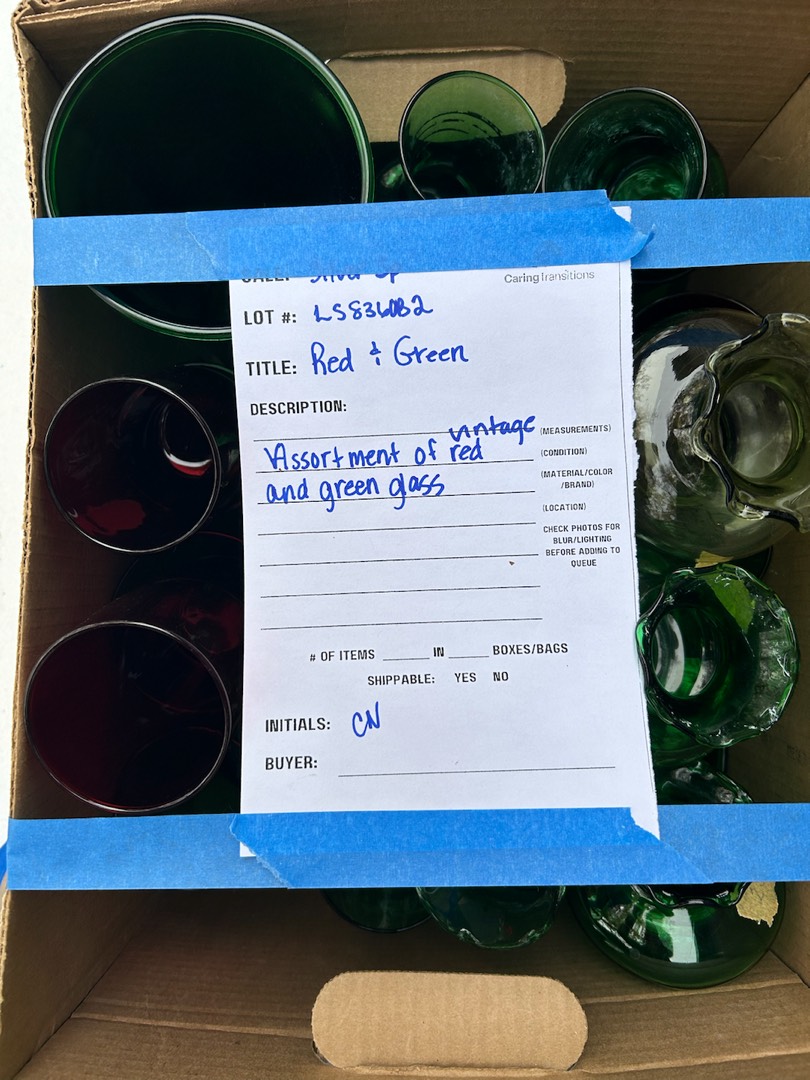 CaringTransitions
LOT #: LS836082
TITLE: Red & Green
DESCRIPTION:
(MEASUREMENTS)
(CONDITION)
(MATERIAL/COLOR
/BRAND)
(LOCATION)
CHECK PHOTOS FOR
BLUR/LIGHTING
BEFORE ADDING TO
QUEUE
vintage
Assortment of red
and green glass
# OF ITEMS ______ IN ______ BOXES/BAGS
SHIPPABLE: YES NO
INITIALS: CN
BUYER: